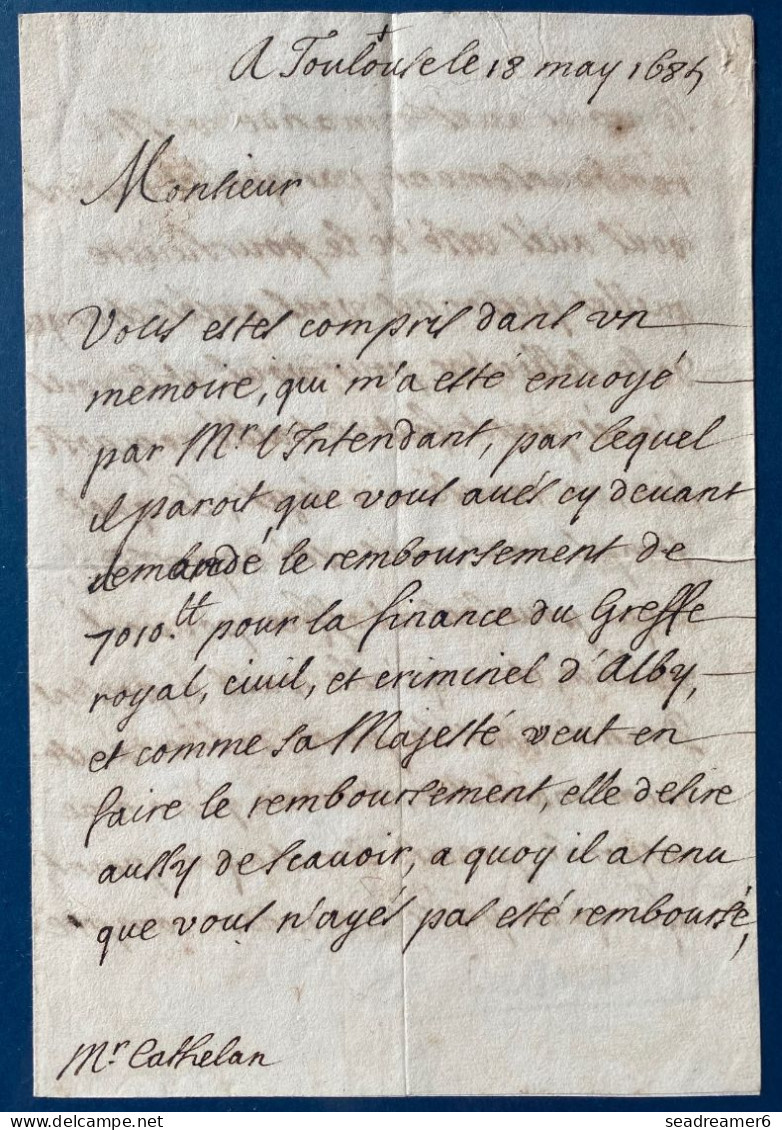 A Toulouse le 18 may 1685
Monsieur
Vous estes compris dans vn
memoire, qui m'a esté enuoyé
par Mr. l'Intendant, par lequel
il paroit que vous aués cy deuant
demandé le remboursement de
7010.tt pour la finance du Greffe
royal, ciuil, et criminel d'Alby,
et comme sa Majesté veut en
faire le remboursement, elle desire
aussy de scauoir, a quoy il a tenu
que vous n'ayés pas esté remboursé,
Mr. Cathelan
seadreamer6 delcampe.net